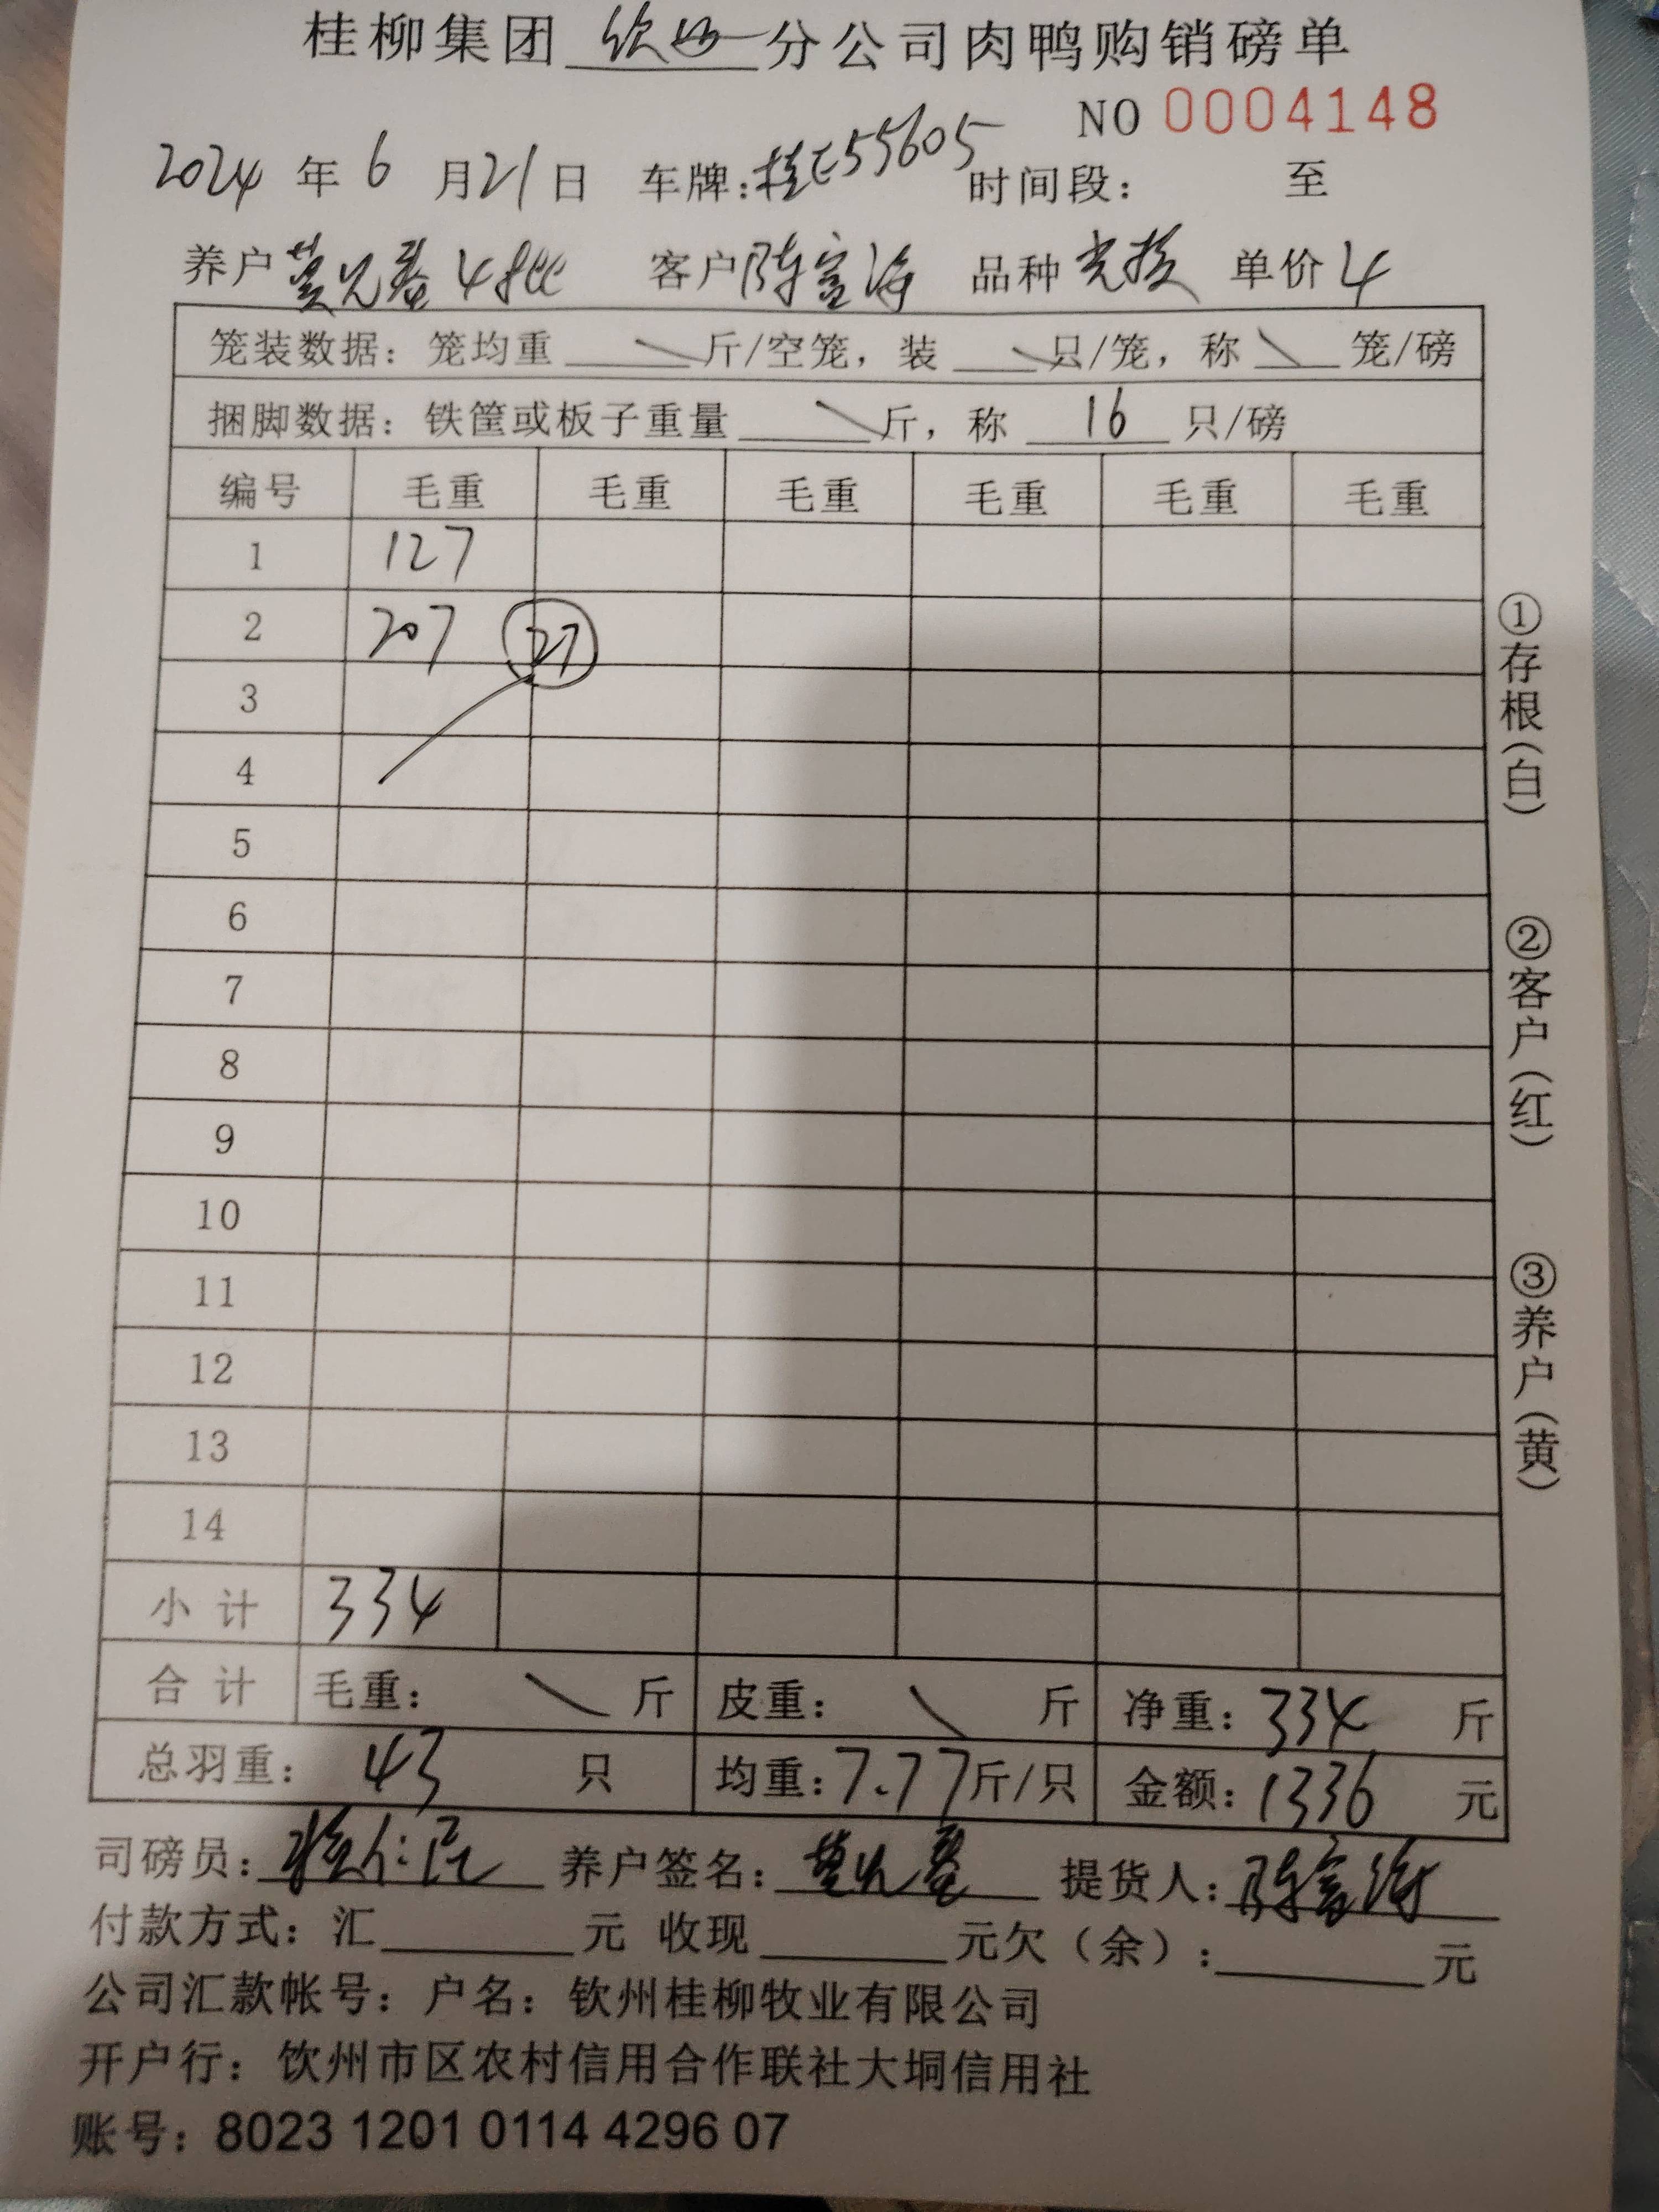 桂柳集团 钦州 分公司肉鸭购销磅单
NO 0004148
2024 年 6 月 21 日 车牌: 桂E55605 时间段: 至
养户 4批 客户 陈富海 品种 单价 4
笼装数据: 笼均重 斤/空笼, 装 只/笼, 称 笼/磅
捆脚数据: 铁筐或板子重量 斤, 称 16 只/磅
编号 毛重 毛重 毛重 毛重 毛重 毛重
1 127
2 207 27
3
4
5
6
7
8
9
10
11
12
13
14
小计 334
合计 毛重: 斤 皮重: 斤 净重: 334 斤
总羽重: 43 只 均重: 7.77 斤/只 金额: 1336 元
司磅员: 养户签名: 提货人: 陈富海
付款方式: 汇 元 收现 元欠(余): 元
公司汇款帐号: 户名: 钦州桂柳牧业有限公司
开户行: 饮州市区农村信用合作联社大垌信用社
账号: 8023 1201 0114 4296 07
①存根(白)
②客户(红)
③养户(黄)